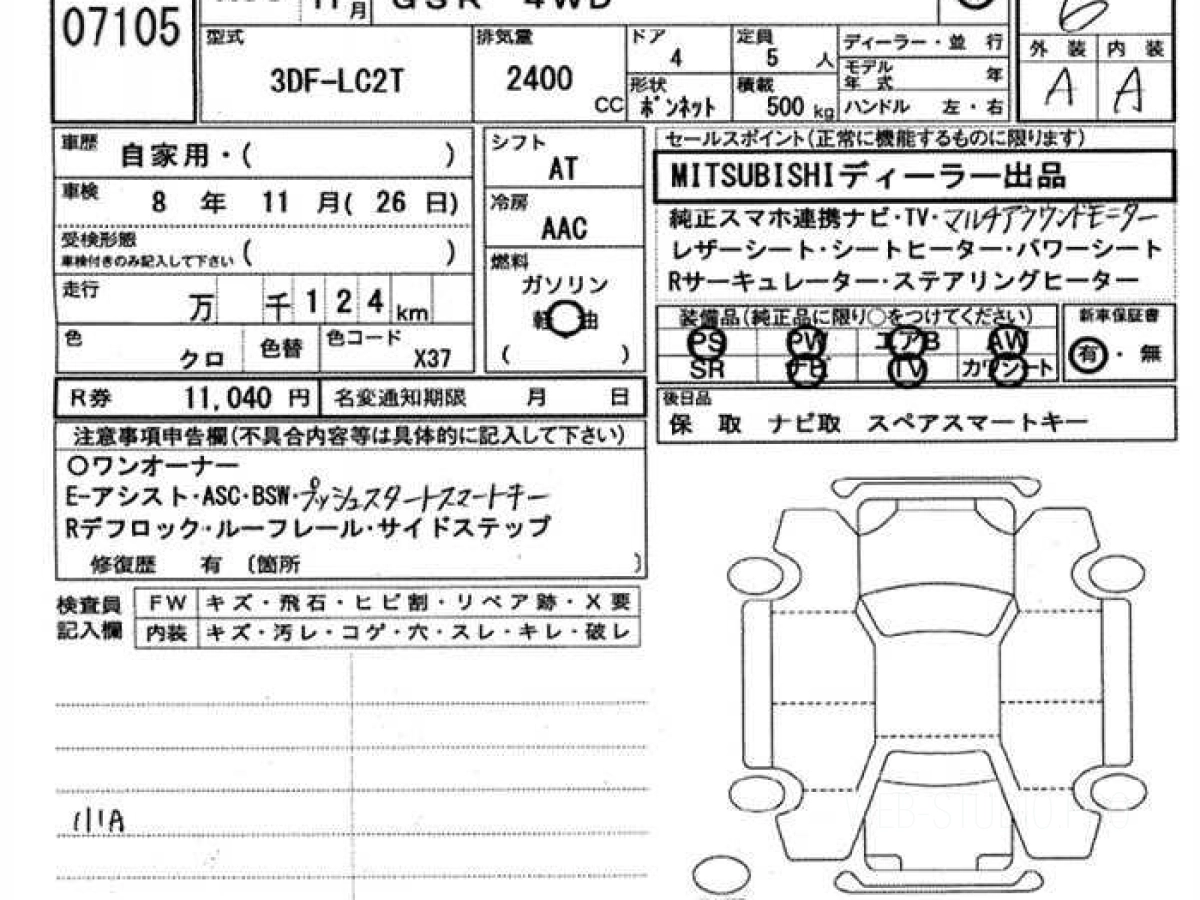 11月 GSR 4WD
07105
型式 3DF-LC2T
排気量 2400 CC
ドア 4
定員 5 人
形状 ボンネット
積載 500 kg
ディーラー・並 行
モデル年式 年
ハンドル 左・右
外 装 内 装
A A
車歴 自家用・( )
車検 8 年 11 月( 26 日)
受検形態 ( )
車検付きのみ記入して下さい
走行 万 千 1 2 4 km
色 クロ 色替 色コード X37
シフト
AT
冷房
AAC
燃料
ガソリン
軽 油
( )
セールスポイント(正常に機能するものに限ります)
MITSUBISHIディーラー出品
純正スマホ連携ナビ・TV・マルチアラウンドモニター
レザーシート・シートヒーター・パワーシート
Rサーキュレーター・ステアリングヒーター
装備品(純正品に限り○をつけてください)
PS PW エアB AW
SR ナビ TV カワシート
新車保証書
有・無
R券 11,040 円 名変通知期限 月 日
後日品
保 取 ナビ取 スペアスマートキー
注意事項申告欄(不具合内容等は具体的に記入して下さい)
○ワンオーナー
E-アシスト・ASC・BSW・プッシュスタートスマートキー
Rデフロック・ルーフレール・サイドステップ
修復歴 有 (箇所 )
検査員記入欄
FW キズ・飛石・ヒビ割・リペア跡・X要
内装 キズ・汚レ・コゲ・穴・スレ・キレ・破レ
WEB-STUDIO.PRO